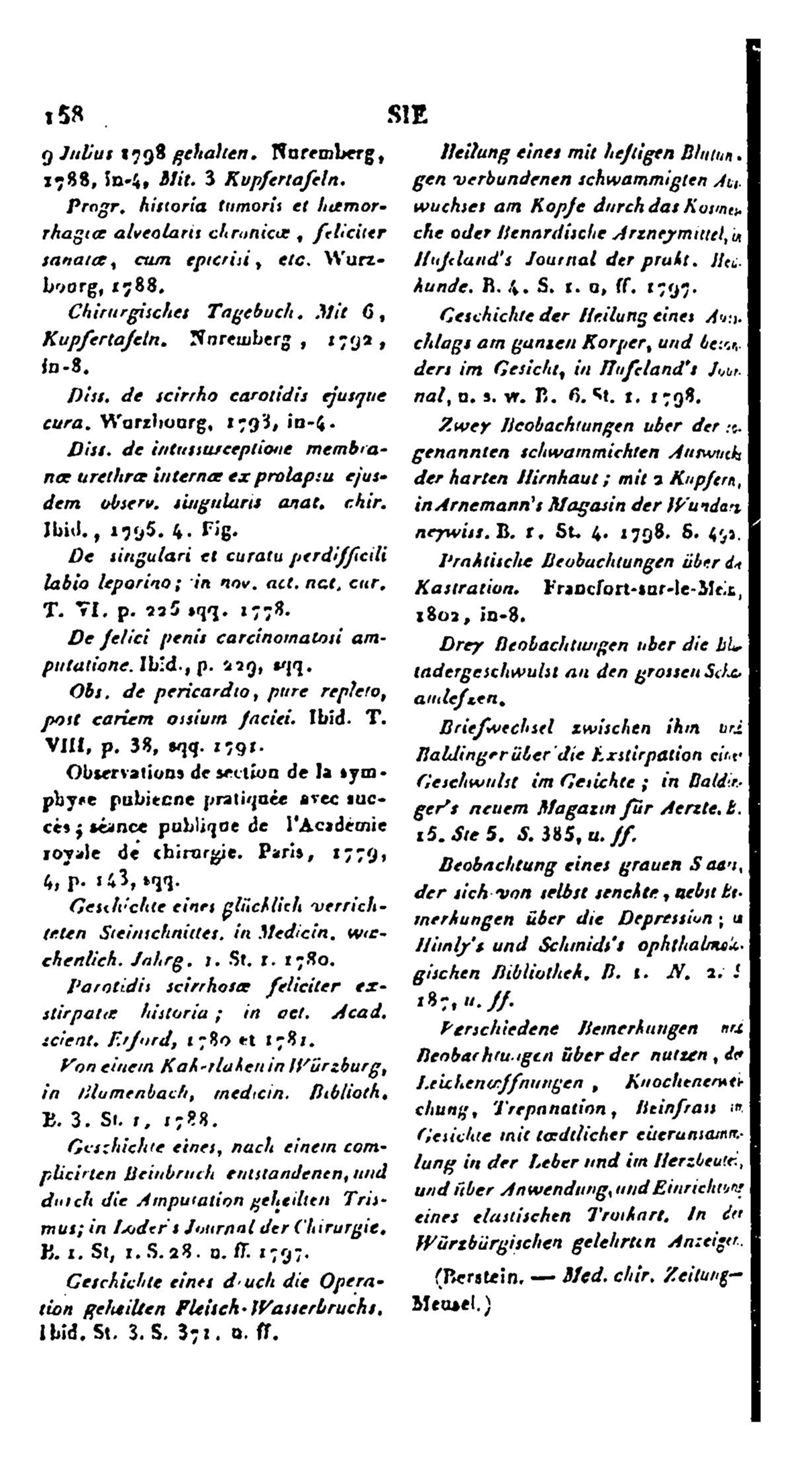 158 SIE
9 Julius 1798 gehalten. Nuremberg,
1788, in-4, Mit. 3 Kupfertafeln.
Progr. historia tumoris et hæmor-
rhagiæ alveolaris chronicæ, feliciter
sanatæ, cum epicrisi, etc. Wurz-
bourg, 1788.
Chirurgisches Tagebuch. Mit 6,
Kupfertafeln. Nuremberg, 1792,
in-8.
Diss. de scirrho carotidis ejusque
cura. Wurzbourg, 1793, in-4.
Diss. de intussusceptione membra-
næ urethræ internæ ex prolapsu ejus-
dem observ. singularis anat. chir.
Ibid., 1795. 4. Fig.
De singulari et curatu perdifficili
labio leporino; in nov. act. nat. cur.
T. VI. p. 225 sqq. 1778.
De felici penis carcinomatosi am-
putatione. Ibid., p. 229, sqq.
Obs. de pericardio, pure repleto,
post cariem ossium faciei. Ibid. T.
VIII, p. 38, sqq. 1791.
Observations de section de la sym-
physe pubienne pratiquée avec suc-
cès; séance publique de l'Académie
royale de chirurgie. Paris, 1779,
4, p. 143, sqq.
Geschichte eines glücklich verrich-
teten Steinschnittes. in Medicin. wœ-
chenlich. Jahrg. 1. St. 1. 1780.
Parotidis scirrhosæ feliciter ex-
stirpatæ historia; in act. Acad.
scient. Erford, 1780 et 1781.
Von einem Kakerlaken in Würzburg,
in Blumenbach, medicin. Biblioth.
B. 3. St. 1, 1788.
Geschichte eines, nach einem com-
plicirten Beinbruch entstandenen, und
durch die Amputation geheilten Tris-
mus; in Loder's Journal der Chirurgie.
B. 1. St, 1. S. 28. u. ff. 1797.
Geschichte eines duch die Opera-
tion geheilten Fleisch-Wasserbruchs.
Ibid. St. 3. S. 371. u. ff.
Heilung eines mit heftigen Blutun-
gen verbundenen schwammigten Aus-
wuchses am Kopfe durch das Kosmes-
che oder Bernardische Arzneymittel, in
Hufeland's Journal der prakt. Hei-
kunde. B. 4. S. 1. u, ff. 1797.
Geschichte der Heilung eines Aus-
chlags am ganzen Korper, und beson-
ders im Gesicht, in Hufeland's Jour-
nal, u. s. w. B. 6. St. 1. 1798.
Zwey Beobachtungen uber der so-
genannten schwammichten Auswuchs
der harten Hirnhaut; mit 2 Kupfern,
in Arnemann's Magasin der Wundarz
neywiss. B. 1. St. 4. 1798. S. 492.
Praktische Beobachtungen über die
Kastration. Francfort-sur-le-Mein,
1802, in-8.
Drey Beobachtungen uber die
tadergeschwulst an den grossen
Briefwechsel zwischen ihm und
Baldinger über die Exstirpation einer
Geschwulst im Gesichte; in Baldin-
ger's neuem Magazin für Aerzte. B.
15. Ste 5. S. 385, u. ff.
Beobachtung eines grauen Staars,
der sich von selbst senckte, nebst Be-
merkungen über die Depression;
Himly's und Schmidt's ophthalmolo-
gischen Bibliothek. B. 1. N. 2. S
187, u. ff.
Verschiedene Bemerkungen und
Beobachtungen über der nutzen, der
Leichenœffnungen, Knochenerwei-
chung, Trepanation, Beinfrass im
Gesichte mit tœdtlicher eiterunsamm-
lung in der Leber und im Herzbeutel,
und über Anwendung, und Einrichtung
eines elastischen Troikart. In der
Würzbürgischen gelehrten Anzeiger.
(Berstein. — Med. chir. Zeitung—
Meusel.)